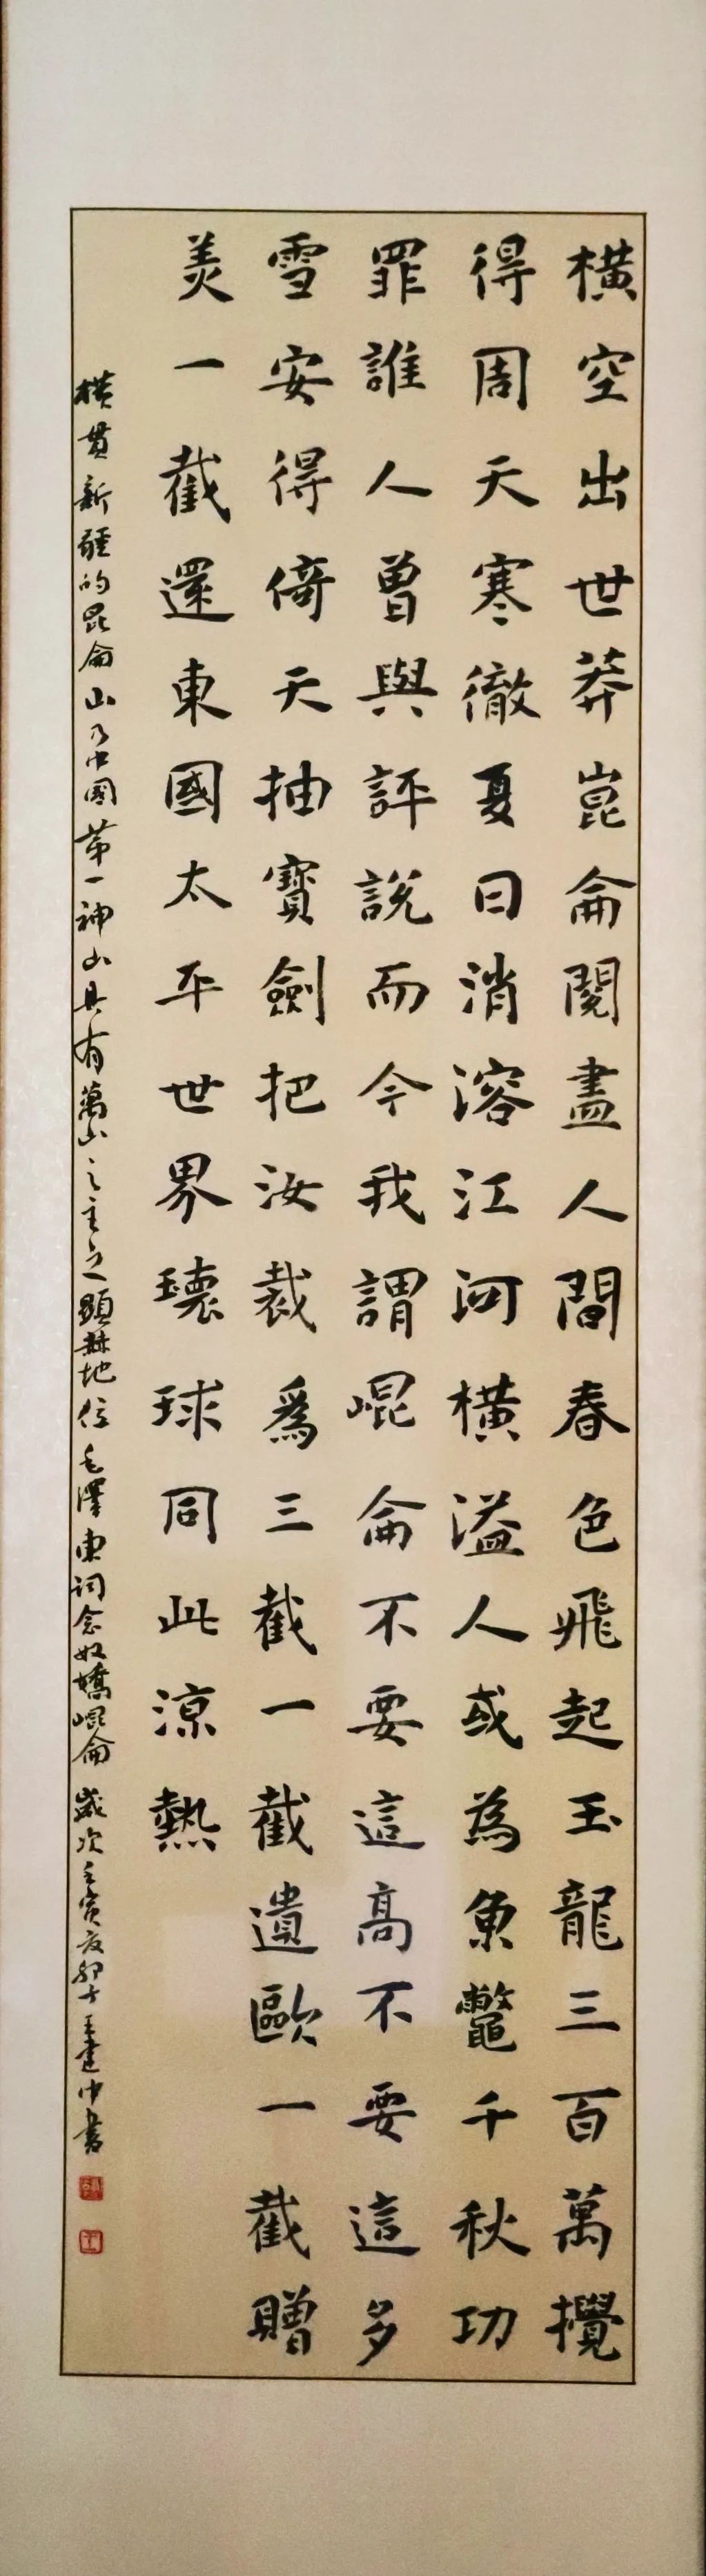 橫空出世莽崑侖閱盡人間春色飛起玉龍三百萬攪
得周天寒徹夏日消溶江河橫溢人或為魚鼈千秋功
罪誰人曾與評說而今我謂崐侖不要這高不要這多
雪安得倚天抽寶劍把汝裁爲三截一截遺歐一截贈
美一截還東國太平世界環球同此涼熱
橫貫新疆的昆侖山乃中國第一神山具有萬山之主之顯赫地位毛澤東詞念奴嬌崐侖歲次壬寅夜王建中書